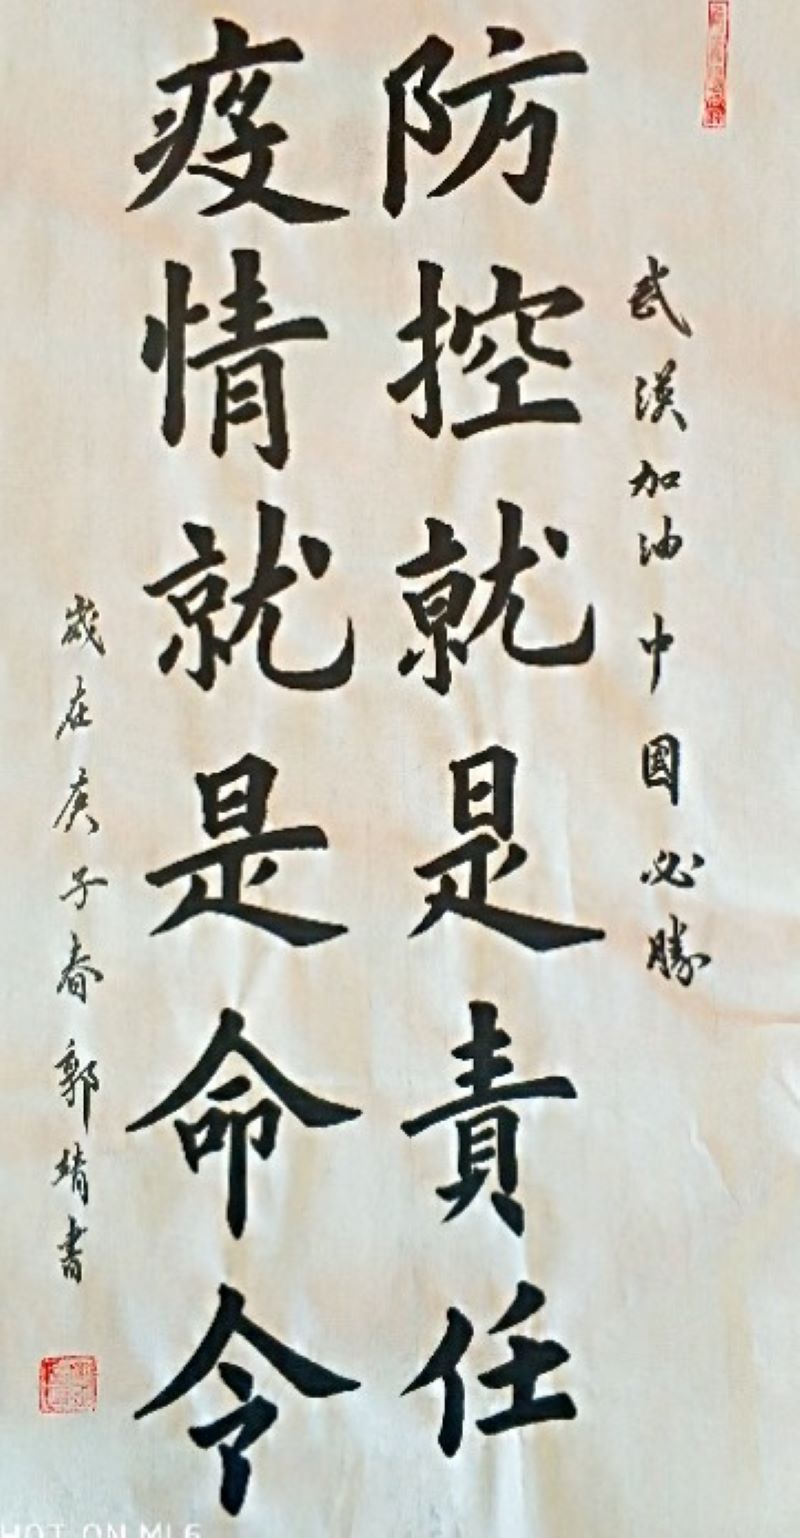 武漢加油中國必勝
防控就是責任
疫情就是命令
歲在庚子春郭靖書
HOT ON MI 6